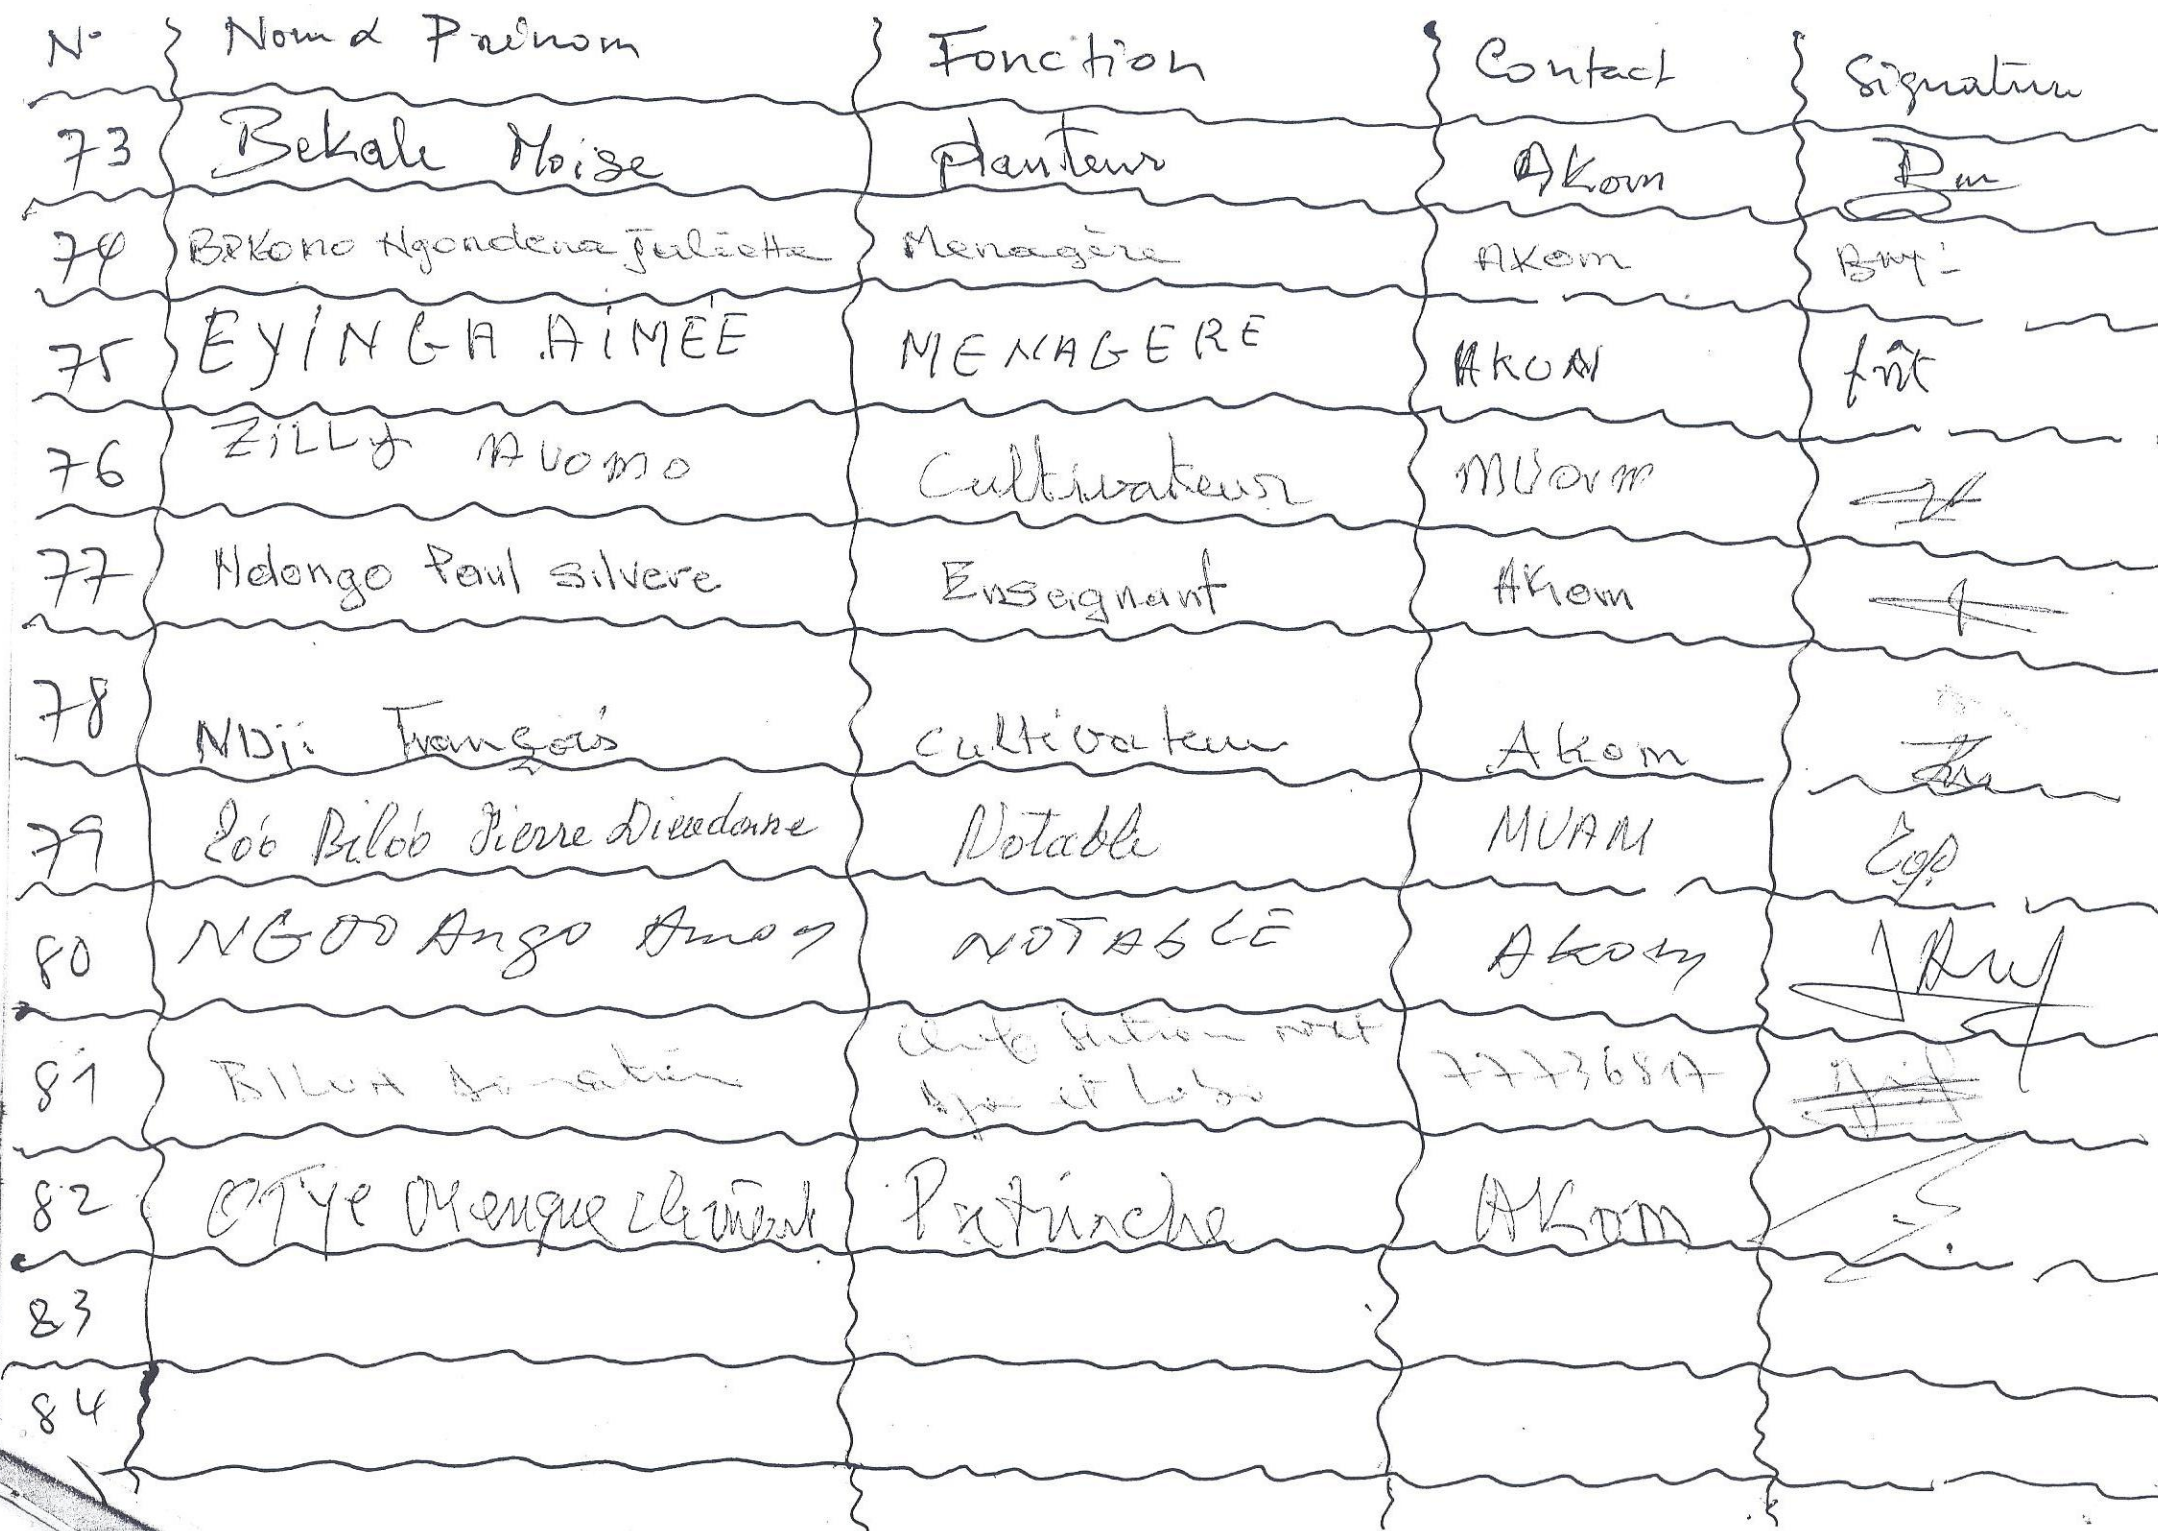 N° Nom & Prénom Fonction Contact Signature
73 Bekale Moise planteur Akom
74 Bekono Ngondena Juliette Menagère Akom
75 EYINGA AIMÉE MENAGERE AKOM
76 ZILLY AVOMO Cultivateur
77 Ndongo Paul Silvere Enseignant Akom
78 NDji François cultivateur Akom
79 Zoo Biloo Pierre Dieudonne Notable MVAM
80 NGOO Ango Amos NOTABLE AKOM
81 BILOA Donatien Chef Section
et Lobo
82 OTYE Clément AKOM
83
84